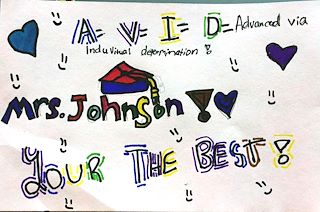 A-V-I-D-Advanced via
Induvinal determination!
Mrs. Johnson!
YOUR THE BEST!